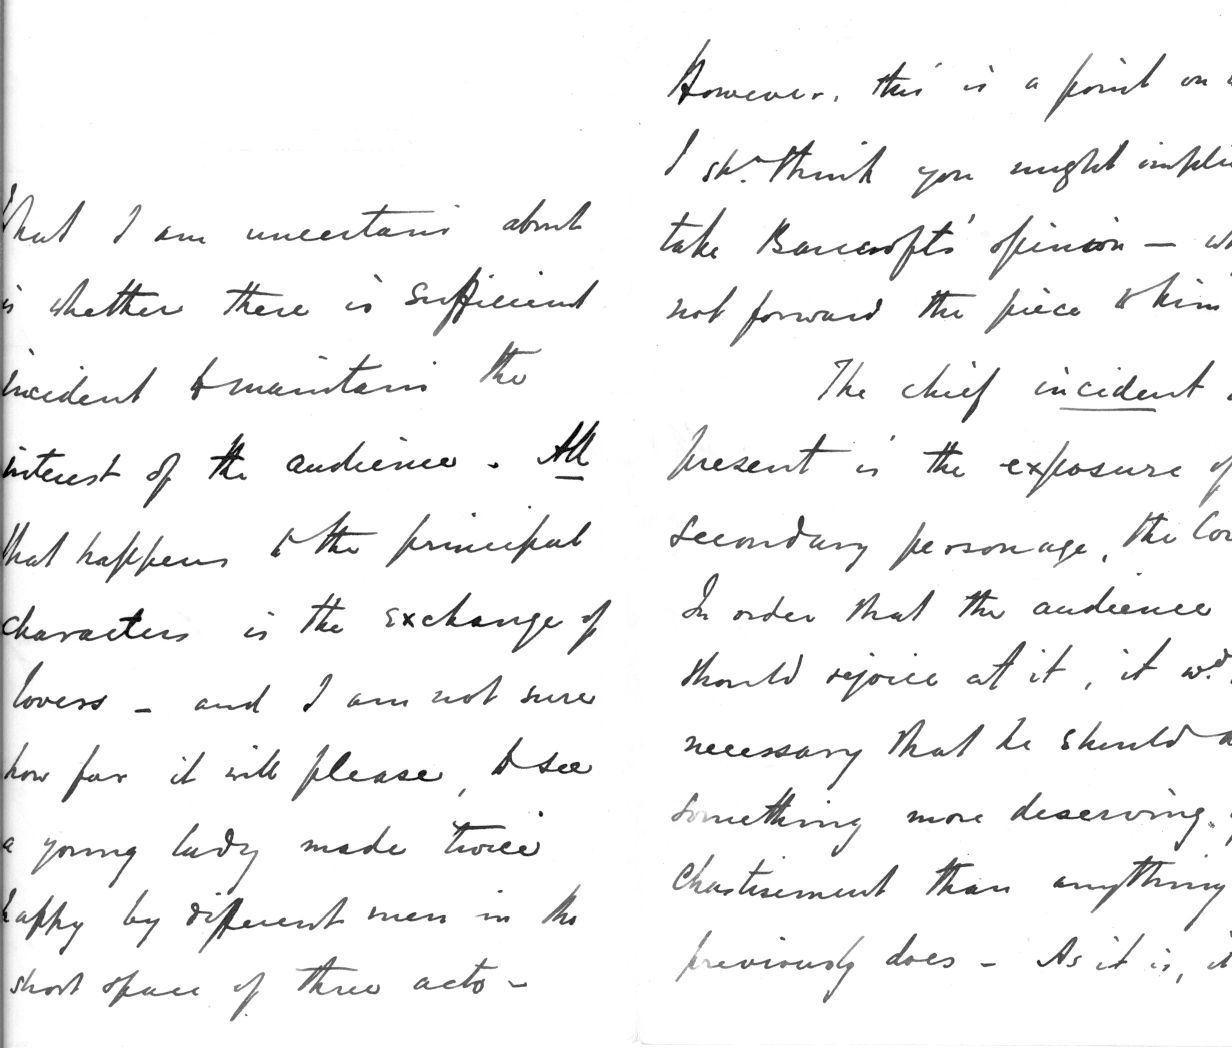 What I am uncertain about
is whether there is sufficient
incident to maintain the
interest of the audience. All
that happens to the principal
characters is the exchange of
lovers – and I am not sure
how far it will please, to see
a young lady made twice
happy by different men in the
short space of three acts –
However, this is a point on
I shd. think you might
take Bancroft's opinion –
not forward the piece to him
The chief incident
present is the exposure of
secondary personage, the
In order that the audience
should rejoice at it, it wd.
necessary that he should
something more deserving
chastisement than anything
previously does – As it is,